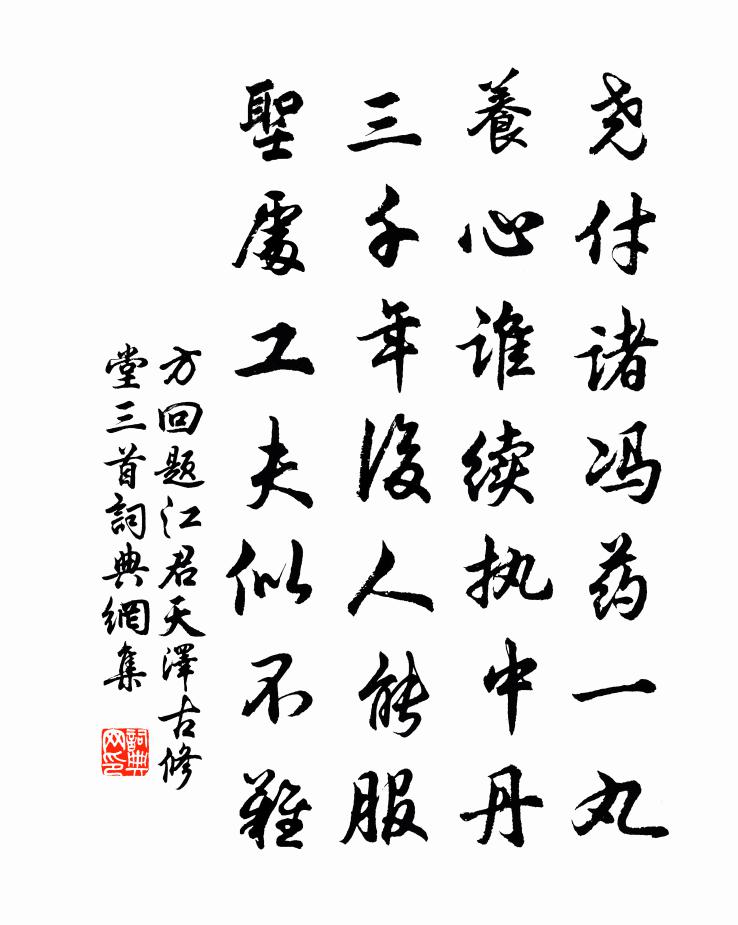 尧付诸冯药一丸
養心谁续执中丹
三千年後人能服
聖處工夫似不難
方回题江君天澤古修
堂三首詞典網集
詞典
网印